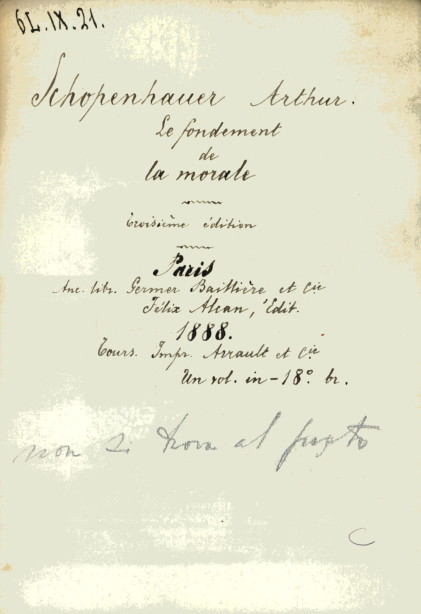 6L.IX.21.
Schopenhauer Arthur.
Le fondement
de
la morale
Troisième édition
Paris
Anc. libr. Germer Baillière et Cie
Félix Alcan, Édit.
1888.
Tours. Impr. Arrault et Cie
Un vol. in-18º. br.
non si trova al
C